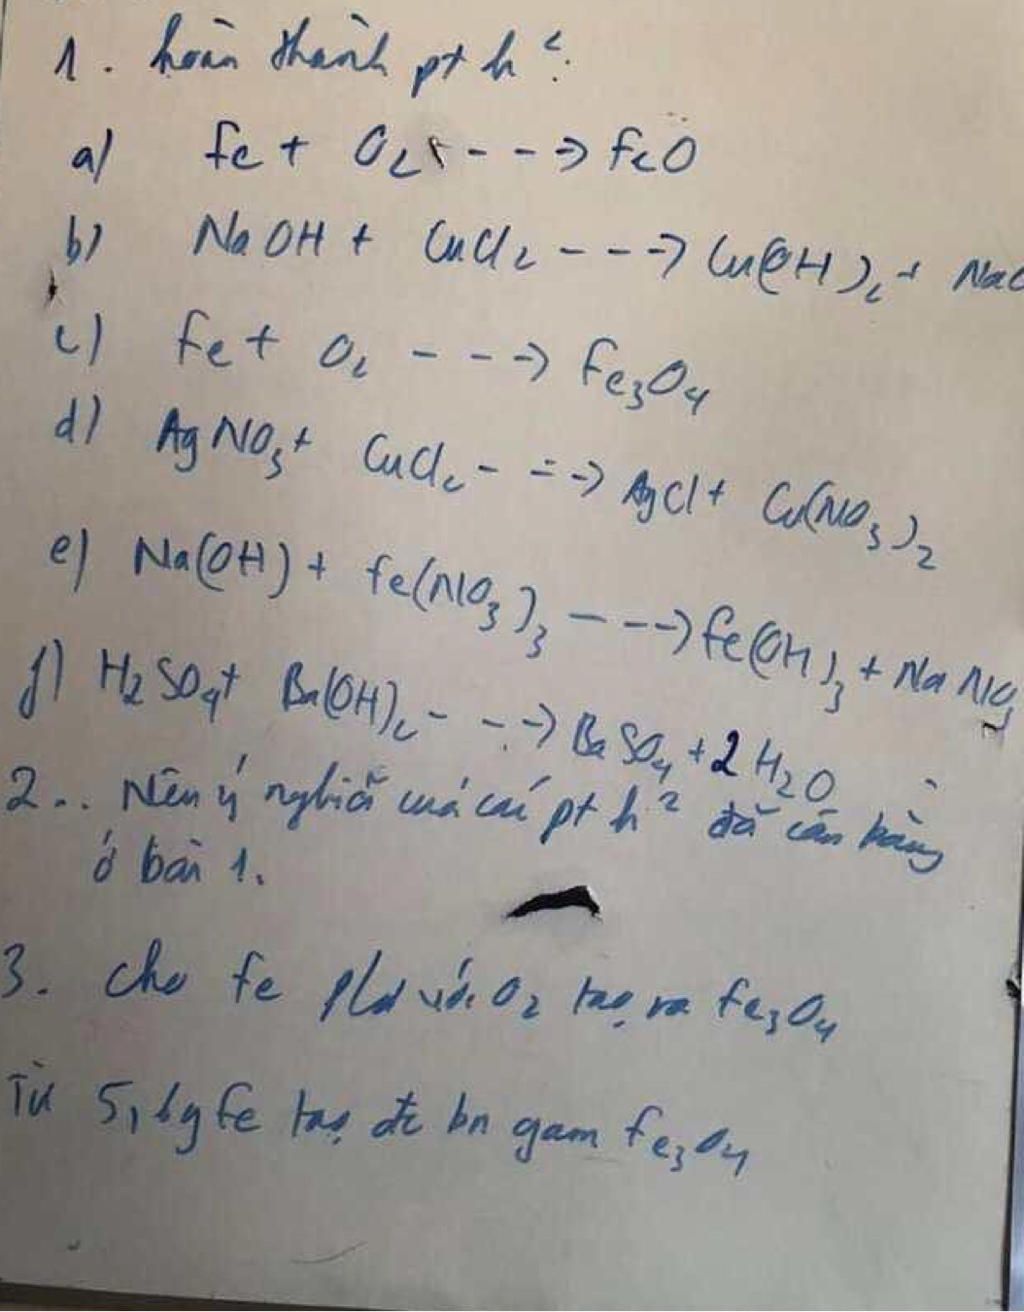 1. hoàn thành pt h²:
a) Fe + O₂ ---> FeO
b) NaOH + CuCl₂ ---> Cu(OH)₂ + Na
c) Fe + O₂ ---> Fe₃O₄
d) AgNO₃ + CuCl₂ ---> AgCl + Cu(NO₃)₂
e) Na(OH) + Fe(NO₃)₃ ---> Fe(OH)₃ + NaNO₃
f) H₂SO₄ + Ba(OH)₂ ---> BaSO₄ + 2H₂O
2.. Nêu ý nghĩa của các pt h² đã cân bằng
ở bài 1.
3. Cho Fe pứ với O₂ tạo ra Fe₃O₄
Từ 5,6g Fe tạo đc bn gam Fe₃O₄